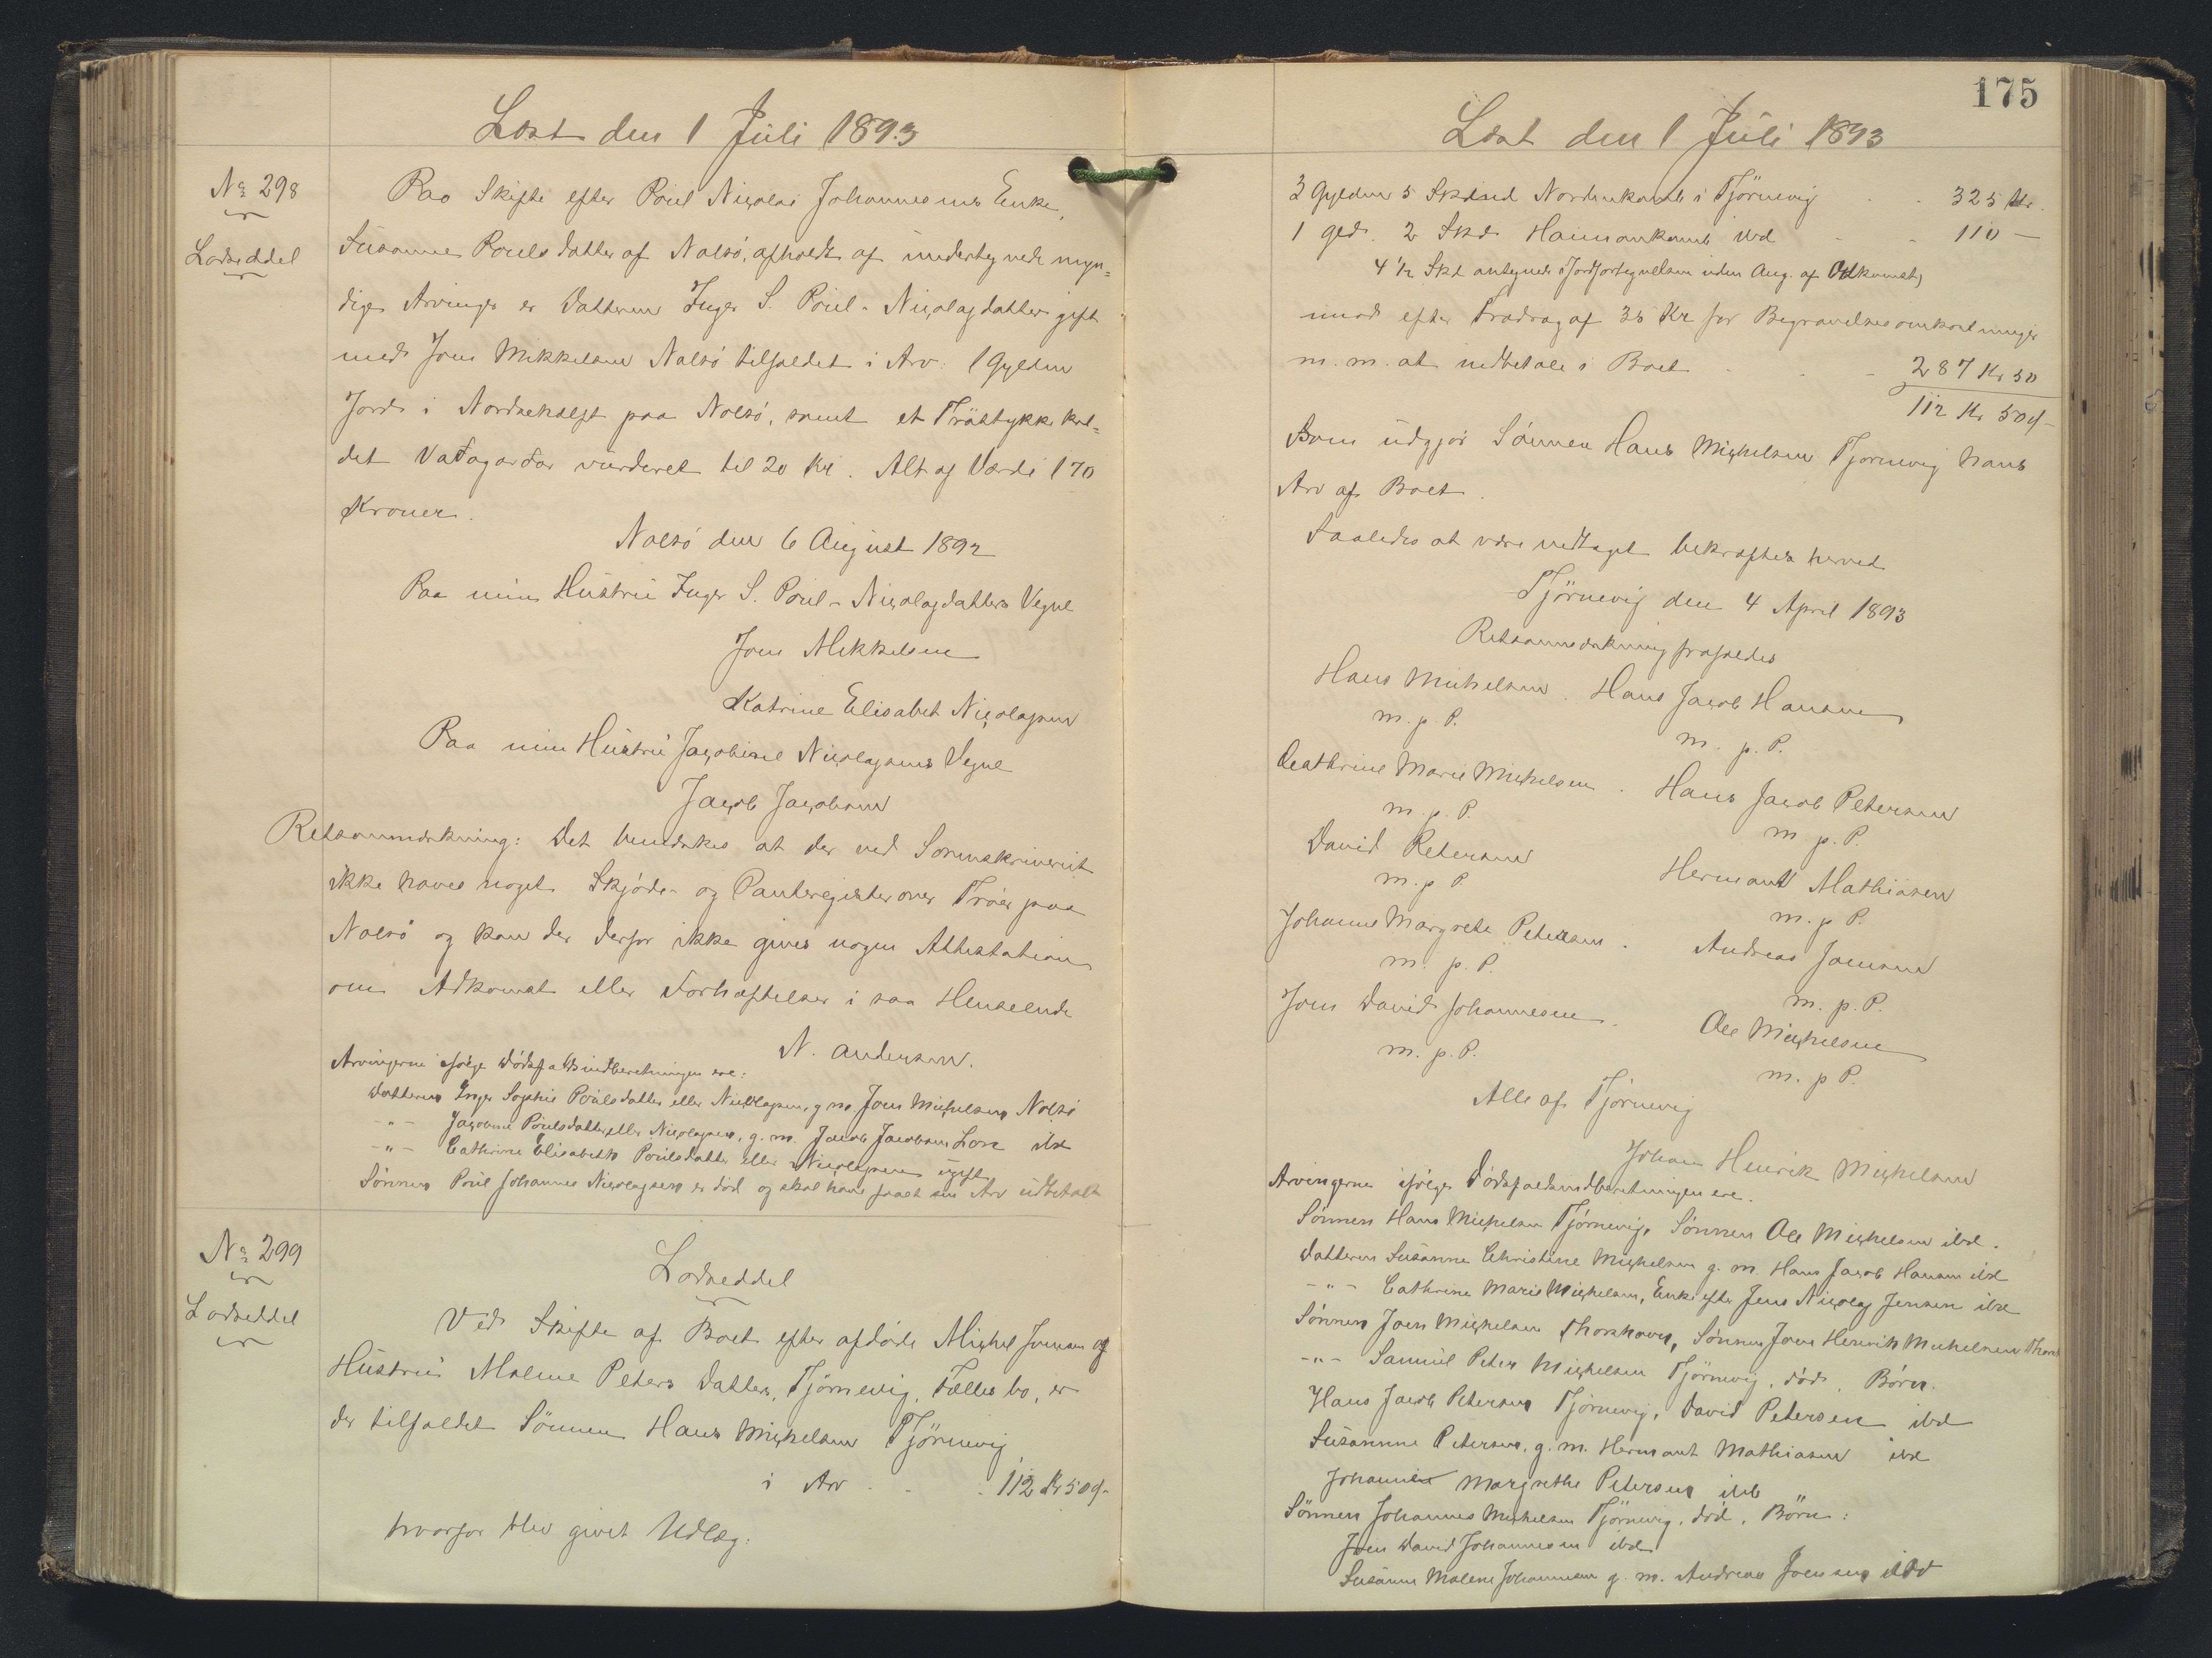 Læst den 1 Juli 1893
No 298
Lodseddel
Paa Skifte efter Poul Nicolai Johannesens Enke,
Susanne Pouls datter af Nolsö, afholdt af undertegnede myn=
dige Arvinger er Datteren Inger S. Poul-Nicolajdatter gift
med Joen Mikkelsen Nolsö tilfaldet i Arv: 1 Gylden
Jord i Nordrehalft paa Nolsö, samt et Tröstykke kal=
det Vaðagarðar vurderet til 20 Kr. Alt af Værdi 170
Kroner.
Nolsö den 6 August 1892
Paa min Hustru Inger S. Poul-Nicolajdatters Vegne
Joen Mikkelsen
Katrine Elisabet Nicolajsen
Paa min Hustru Jacobine Nicolajsens Vegne
Jacob Jacobsen
Retsanmærkning: Det bemærkes at der ved Sorenskriveriet
ikke haves noget Skjöde- og Panteregister over Tröer paa
Nolsö og kan der derfor ikke gives nogen Attestation
om Adkomst eller Forhæftelser i saa Henseende
N. Andersen.
Arvingerne ifölge Dödsfaldsindberetningen ere:
Datteren Inger Sophie Poulsdatter eller Nicolajsen, g. m. Joen Michelsen Nolsö
-"- Jacobine Poulsdatter eller Nicolajsen, g. m. Jacob Jacobsen ibd
-"- Cathrine Elisabeth Poulsdatter eller Nicolajsen ugift
Sönnen Poul Johannes Nicolajsen er död og skal have faaet sin Arv udbetalt
No 299
Lodseddel
Lodseddel
Ved Skifte af Boet efter afdöde Michel Joensen og
Hustru Malene Peters datter, Tjörnevig, Fælles bo, er
der tilfaldet Sönnen Hans Michelsen Tjörnevig
i Arv - - - 112 Kr 50 Ø-
hvorfor blev givet Udlæg:
175
Læst den 1 Juli 1893
2 Gylden 5 Skind Nordenkamb i Tjörnevig - - 325 Kr.
1 Gld. 2 Skd. Heimankamb ibd - - 110 —
4 1/2 Skd antegnet i Jordfortegnelsen uden Ang. af Adkomst)
imod efter Fradrag af 35 Kr for Begravelsesomkostninger
m. m. at indbetale i Boet - - - 287 Kr 50
112 Kr 50 Ø-
Som udgjör Sönnen Hans Michelsen Tjörnevig hans
Arv af Boet.
Saaledes at være vedtaget bekræftes herved
Tjörnevig den 4 April 1893
Retsanmærkning frafaldes
Hans Michelsen. Hans Jacob Hansen
m. p. P. m. p. P.
Cathrine Marie Michelsen. Hans Jacob Petersen
m. p. P. m. p. P.
David Petersen Hermant Mathiasen
m. p. P. m. p. P.
Johanne Margrete Petersen. Andreas Joensen
m. p. P. m. p. P.
Joen David Johannesen. Ole Michelsen
m. p. P. m. p. P.
Alle af Tjörnevig
Johan Henrik Michelsen
Arvingerne ifölge Dödsfaldsindberetningen ere.
Sönnen Hans Michelsen Tjörnevig, Sönnen Ole Michelsen ibd.
Datteren Susanne Christine Michelsen g. m. Hans Jacob Hansen ibd
-"- Cathrine Marie Michelsen, Enke efter Jens Nicolaj Jensen ibd
Sönnen Joen Michelsen Thorshavn, Sönnen Joen Henrik Michelsen Thorsh
-"- Samuel Peter Michelsen Tjörnevig, död, Börn:
Hans Jacob Petersen Tjörnevig, David Petersen ibd
Susanne Petersen, g. m. Hermant Mathiasen ibd
Johanne Margrethe Petersen ibd
Sönnen Johannes Michelsen Tjörnevig, död, Börn:
Joen David Johannesen ibd
Susanne Malene Johannesen g. m. Andreas Joensen ibd